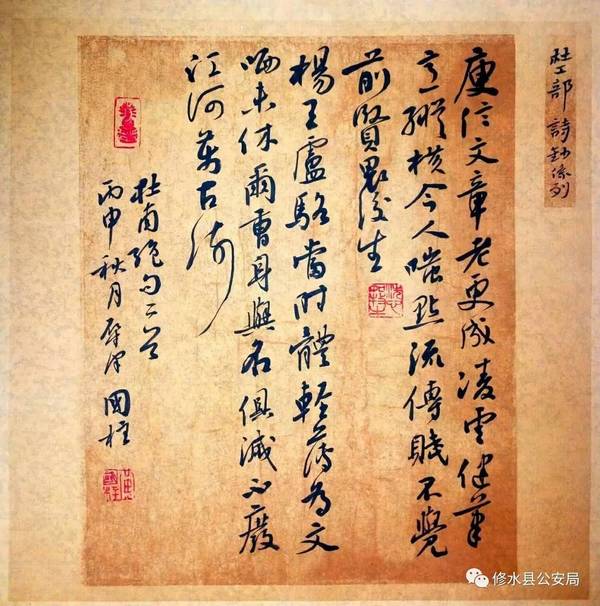 杜工部 詩鈔系列
庾信文章老更成凌雲健筆
意縱橫今人嗤點流傳賦不覺
前賢畏後生
楊王盧駱當時體輕薄為文
哂未休爾曹身與名俱滅不廢
江河萬古流
杜甫絕句二首
丙申秋月 國柱
修水县公安局